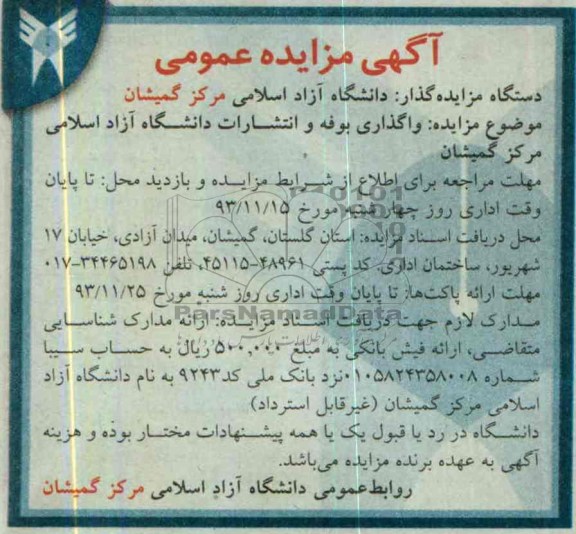 آگهی مزایده عمومی
دستگاه مزایده‌گذار: دانشگاه آزاد اسلامی مرکز گمیشان
موضوع مزایده: واگذاری بوفه و انتشارات دانشگاه آزاد اسلامی
مرکز گمیشان
مهلت مراجعه برای اطلاع از شرایط مزایده و بازدید محل: تا پایان
وقت اداری روز چهارشنبه مورخ ۹۳/۱۱/۱۵
محل دریافت اسناد مزایده: استان گلستان، گمیشان، میدان آزادی، خیابان ۱۷
شهریور، ساختمان اداری، کد پستی ۴۸۹۶۱-۴۵۱۱۵، تلفن ۳۴۴۶۵۱۹۸-۰۱۷
مهلت ارائه پاکت‌ها: تا پایان وقت اداری روز شنبه مورخ ۹۳/۱۱/۲۵
ParsNamadData
مدارک لازم جهت دریافت اسناد مزایده: ارائه مدارک شناسایی
متقاضی، ارائه فیش بانکی به مبلغ ۵۰۰,۰۰۰ ریال به حساب سیبا
شماره ۰۱۰۵۸۲۴۳۵۸۰۰۸ نزد بانک ملی کد ۹۲۴۳ به نام دانشگاه آزاد
اسلامی مرکز گمیشان (غیرقابل استرداد)
دانشگاه در رد یا قبول یک یا همه پیشنهادات مختار بوده و هزینه
آگهی به عهده برنده مزایده می‌باشد.
روابط‌عمومی دانشگاه آزاد اسلامی مرکز گمیشان